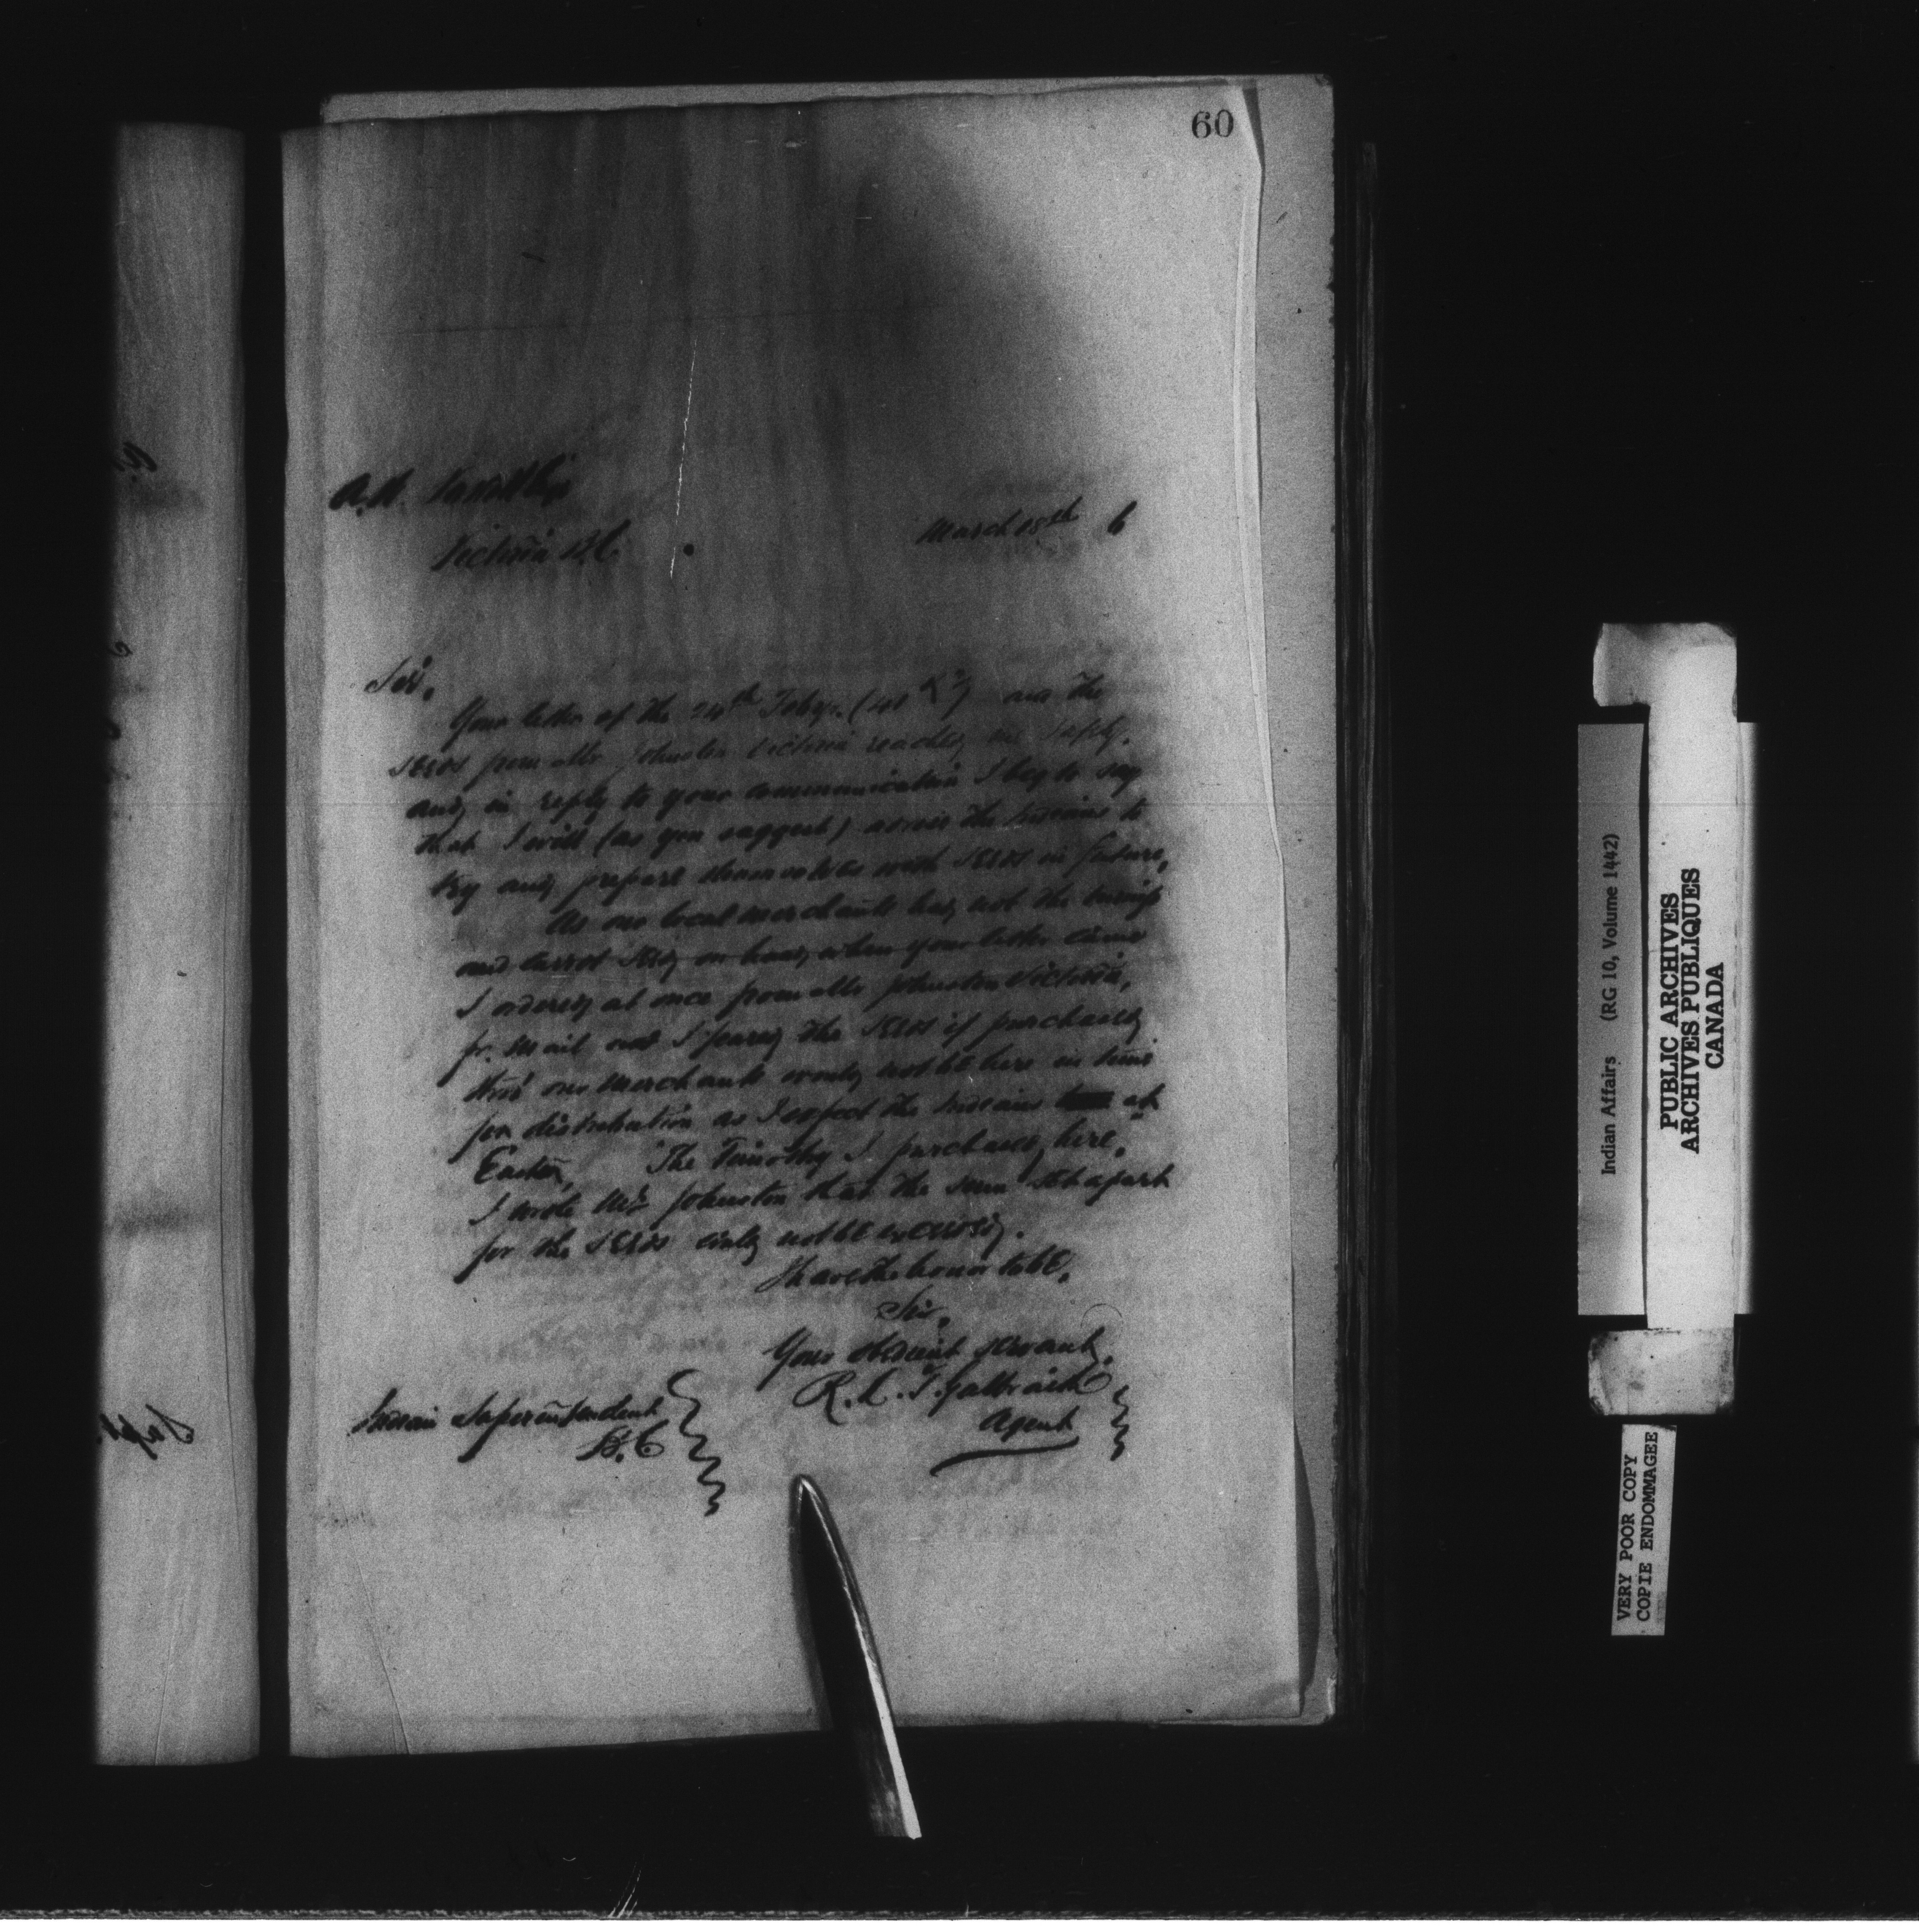 60
A.W.
Victoria B.C.
March 18th 6
Sir,
Your letter of the 24th Feby. (no and the
seeds from Mr Johnston Victoria reached me safely.
and in reply to your communication I beg to say
that I will (as you suggest) advise the Indians to
try and prepare themselves with seeds in future,
As our local merchants had not the turnip
and carrot seed on hand when your letter came
I ordered at once from Mr Johnston Victoria,
pr. mail and I feared the seeds if purchased
thro' our merchants would not be here in time
for distribution as I expect the Indians at
Easter, The Timothy I purchased here,
I wrote Mr Johnston that the sum set apart
for the seeds could not be exceeded.
I have the honor to be,
Sir,
Your obedient servant,
R. L. T. Galbraith
Agent
Indian Superintendent
B.C
Indian Affairs (RG 10, Volume 1442)
PUBLIC ARCHIVES
ARCHIVES PUBLIQUES
CANADA
VERY POOR COPY
COPIE ENDOMMAGEE